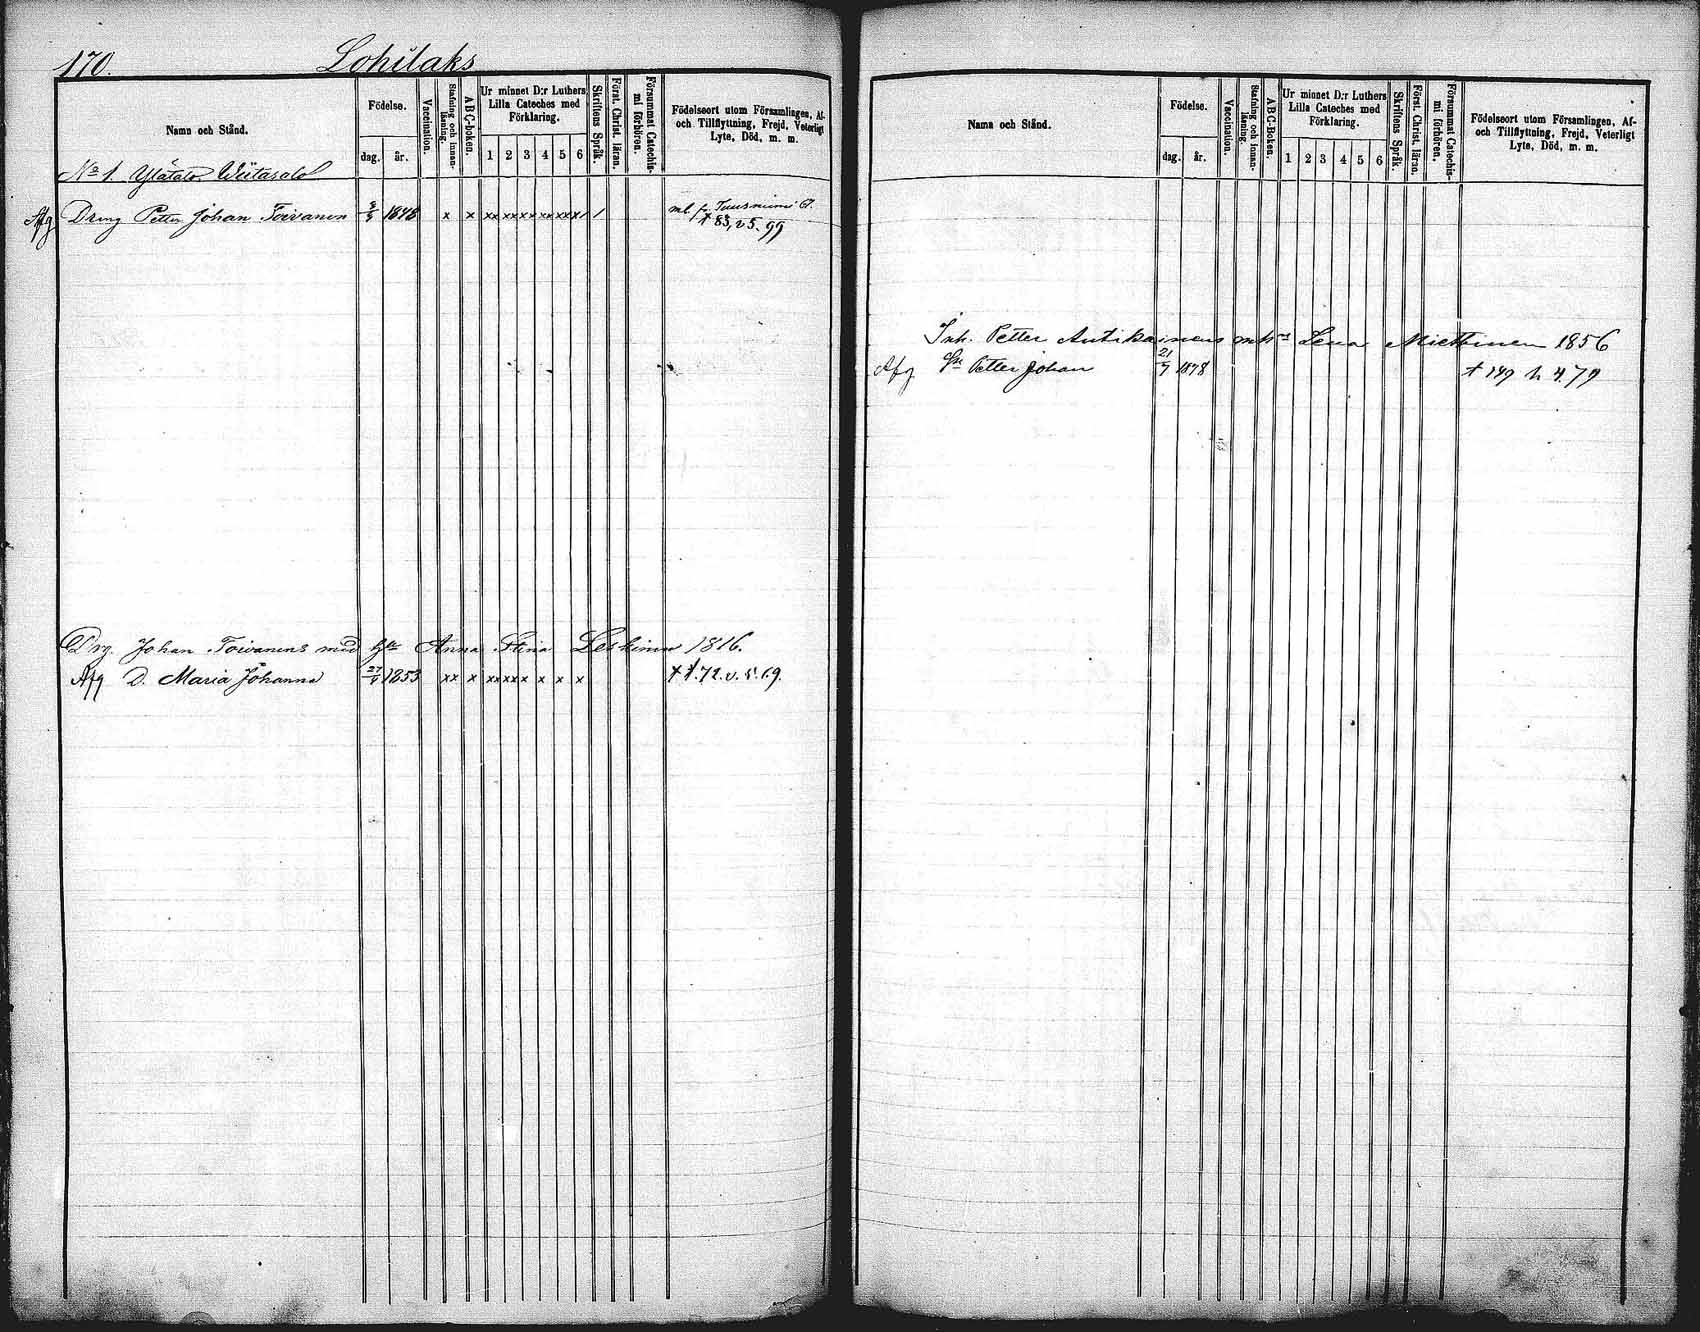 170. Lohilaks
Namn och Stånd.
Födelse.
dag. år.
Vaccination.
Stafning och innan-läsning.
ABC-boken.
Ur minnet D:r Luthers
Lilla Cateches med
Förklaring.
1 2 3 4 5 6
Skriftens Språk.
Först. Christ. läran.
Försummat Catechis-
mi förhören.
Födelseort utom Församlingen, Af-
och Tillflyttning, Frejd, Veterligt
Lyte, Död, m. m.
No 1. Ylätalo
Afg Dreng Petter Johan Toivanen 1848 x x xx xx x xx xxx / /
† 83, v 5. 99
Drg. Johan Toivanens med Anna Stina Leskinen 1816.
Afg D. Maria Johanna 27/4 1853 xx x xx xx x x x x † 1.72. v. 5. 69.
Namn och Stånd.
Födelse.
dag. år.
Vaccination.
Stafning och innan-läsning.
ABC-Boken.
Ur minnet D:r Luthers
Lilla Cateches med
Förklaring.
1 2 3 4 5 6
Skriftens Språk.
Först. Christ. läran.
Försummat Catechis-
mi förhören.
Födelseort utom Församlingen, Af-
och Tillflyttning, Frejd, Veterligt
Lyte, Död, m. m.
Inh. Petter Antikainens m h Lena Miettinen 1856
Afg Petter Johan 21/7 1878 † 149 h 4.79